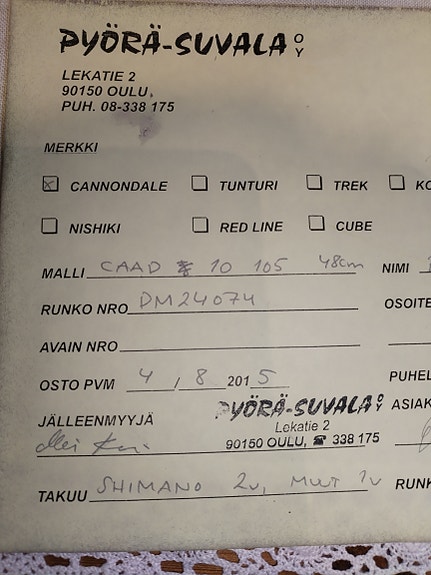 PYÖRÄ-SUVALA OY
LEKATIE 2
90150 OULU,
PUH. 08-338 175
MERKKI
CANNONDALE TUNTURI TREK KO
NISHIKI RED LINE CUBE
MALLI CAAD 10 105 48cm NIMI
RUNKO NRO DM24074 OSOITE
AVAIN NRO
OSTO PVM 4 / 8 2015 PUHEL
JÄLLEENMYYJÄ PYÖRÄ-SUVALA OY ASIAK
Lekatie 2
90150 OULU, ☎ 338 175
TAKUU SHIMANO 2v, MUUT 1v RUNK